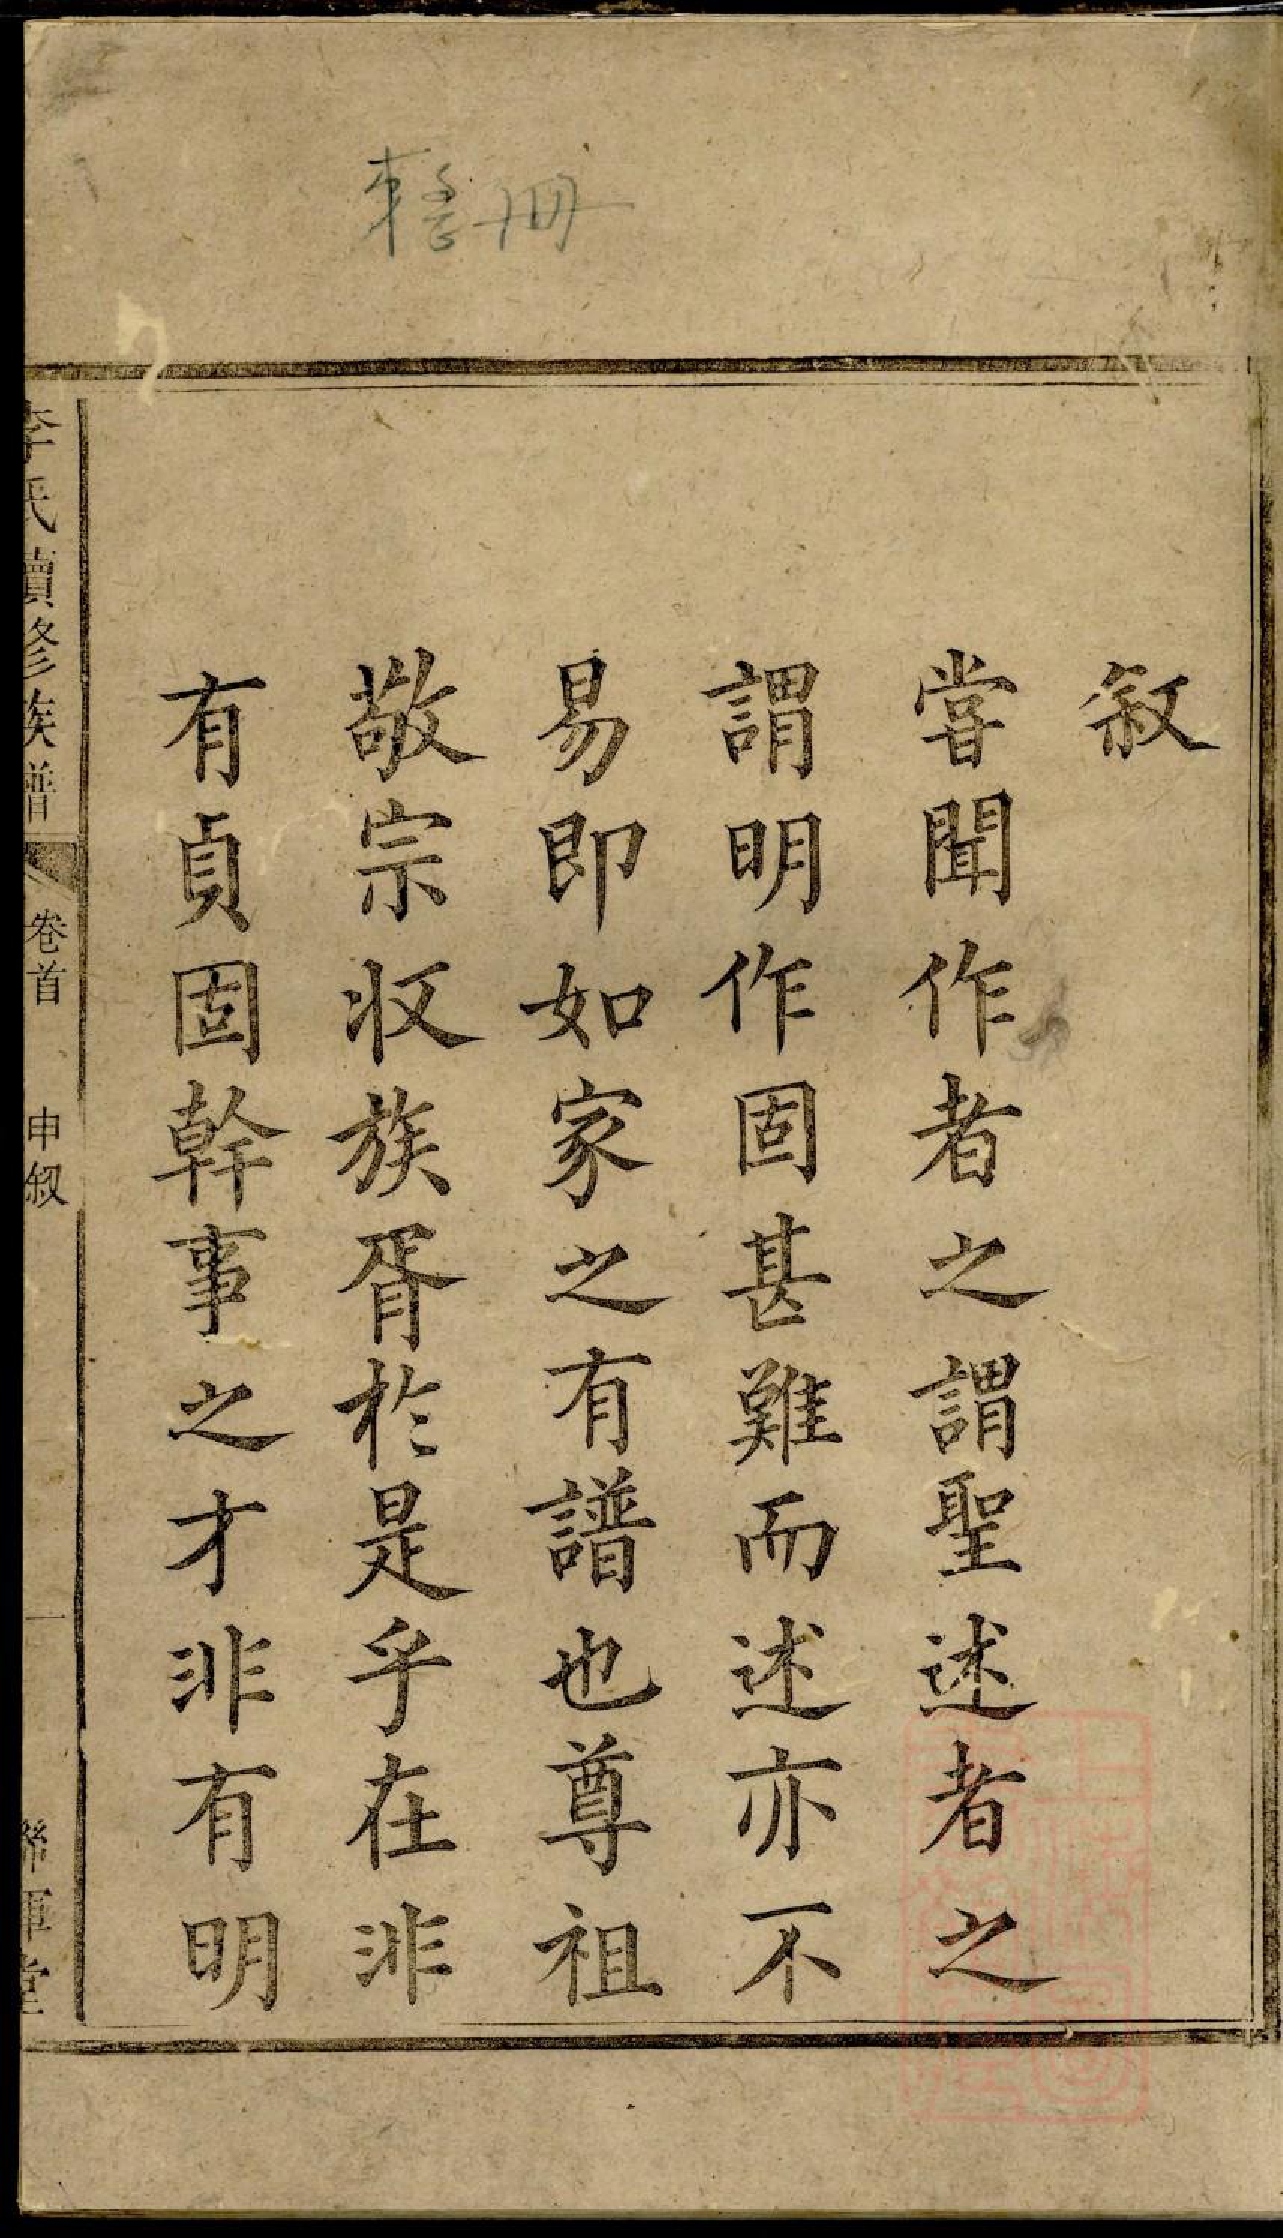 敘
甞聞作者之謂聖述者之
謂明作固甚難而述亦不
易即如家之有譜也尊祖
敬宗収族胥於是乎在非
有貞固幹事之才非有明
李氏續修族譜
卷首
申叙
一
聯軍堂